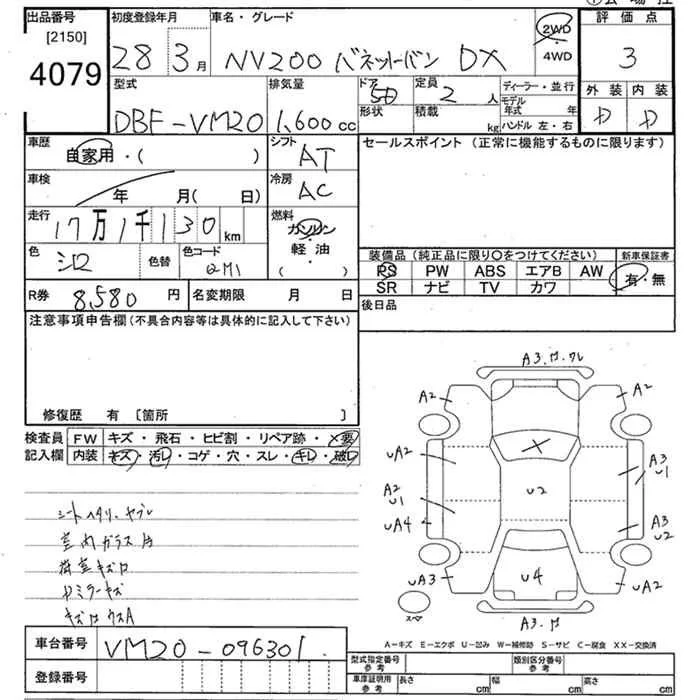 出品番号 初度登録年月 車名・グレード 2WD・4WD 評価点
[2150]
4079 28 3月 NV200 バネットバン DX 3
型式 排気量 ドア 定員 ディーラー・並行 外装 内装
DBF-VM20 1,600cc 5D 2人 モデル年式 年
形状 積載 kg ハンドル 左・右
車歴 自家用・( ) シフト AT セールスポイント (正常に機能するものに限ります)
車検 年 月(日) 冷房 AC
走行 17万1千130km 燃料 ガソリン・軽油・( )
色 シロ 色替 色コード QM1
装備品 (純正品に限り〇をつけてください) 新車保証書
PS PW ABS エアB AW 有・無
SR ナビ TV カワ
R券 8,580円 名変期限 月 日 後日品
注意事項申告欄(不具合内容等は具体的に記入して下さい)
修復歴 有 [箇所 ]
検査員 FW キズ・飛石・ヒビ割・リペア跡・×要
記入欄 内装 キズ・汚レ・コゲ・穴・スレ・キレ・破レ
シートヘタリ、ヤブレ
キズ
A3
A2 A2
UA2 A3 U1
A2 U1 U2
UA4 A3 U2
UA3 U4 UA2
スペア A3
A-キズ E-エクボ U-凹み W-補修跡 S-サビ C-腐食 XX-交換済
車台番号 VM20-096301
登録番号
型式指定番号 参考 類別区分番号 参考
車庫証明用 参考 長さ cm 幅 cm 高さ cm